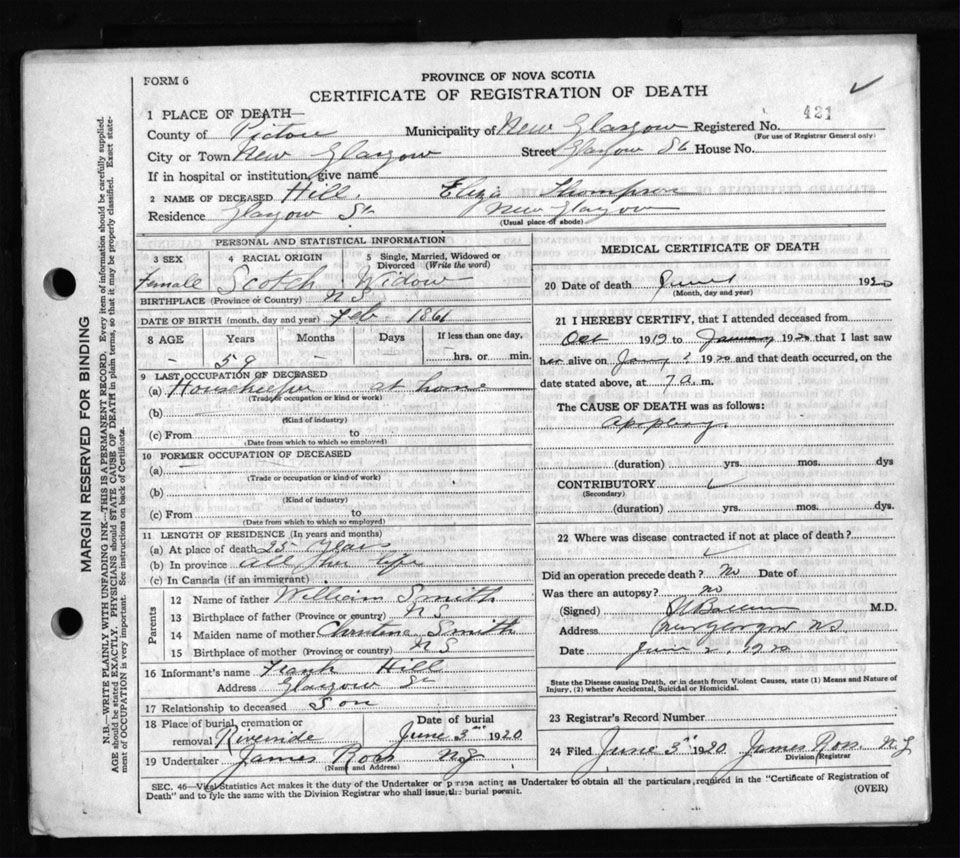 FORM 6
PROVINCE OF NOVA SCOTIA
CERTIFICATE OF REGISTRATION OF DEATH
1 PLACE OF DEATH—
County of Pictou Municipality of New Glasgow Registered No. 421
(For use of Registrar General only)
City or Town New Glasgow Street Glasgow St House No.
If in hospital or institution, give name
2 NAME OF DECEASED Hill, Eliza Thompson
Residence Glasgow St New Glasgow
(Usual place of abode)
PERSONAL AND STATISTICAL INFORMATION
3 SEX 4 RACIAL ORIGIN 5 Single, Married, Widowed or Divorced (Write the word)
Female Scotch Widow
BIRTHPLACE (Province or Country) N S
DATE OF BIRTH (month, day and year) Feb 1861
8 AGE Years Months Days If less than one day,
- 59 - hrs. or min.
9 LAST OCCUPATION OF DECEASED
(a) Housekeeper at home
(Trade, occupation or kind or work)
(b)
(Kind of industry)
(c) From to
(Date from which to which so employed)
10 FORMER OCCUPATION OF DECEASED
(a)
(Trade or occupation or kind or work)
(b)
(Kind of industry)
(c) From to
(Date from which to which so employed)
11 LENGTH OF RESIDENCE (In years and months)
(a) At place of death 25 years
(b) In province all her life
(c) In Canada (if an immigrant)
Parents
12 Name of father William Smith
13 Birthplace of father (Province or country) N S
14 Maiden name of mother Christina Smith
15 Birthplace of mother (Province or country) N S
16 Informant's name Frank Hill
Address Glasgow St
17 Relationship to deceased Son
18 Place of burial, cremation or removal Riverside Date of burial June 3rd 1920
19 Undertaker James Ross N.G
(Name and Address)
MEDICAL CERTIFICATE OF DEATH
20 Date of death June 1 1920
(Month, day and year)
21 I HEREBY CERTIFY, that I attended deceased from
Oct 1919 to January 1920 that I last saw
her alive on 1920 and that death occurred, on the
date stated above, at 7 a. m.
The CAUSE OF DEATH was as follows:
(duration) yrs. mos. dys
CONTRIBUTORY
(Secondary)
(duration) yrs. mos. dys.
22 Where was disease contracted if not at place of death?
Did an operation precede death? No Date of
Was there an autopsy? no
(Signed) M.D.
Address New Glasgow N.S.
Date June 2, 1920
State the Disease causing Death, or in death from Violent Causes, state (1) Means and Nature of Injury, (2) whether Accidental, Suicidal or Homicidal.
23 Registrar's Record Number
24 Filed June 3rd 1920 James Ross N.G
Division Registrar
SEC. 46—Vital Statistics Act makes it the duty of the Undertaker or person acting as Undertaker to obtain all the particulars required in the "Certificate of Registration of
Death" and to fyle the same with the Division Registrar who shall issue the burial permit. (OVER)
MARGIN RESERVED FOR BINDING
N.B.—WRITE PLAINLY WITH UNFADING INK—THIS IS A PERMANENT RECORD. Every item of information should be carefully supplied.
AGE should be stated EXACTLY. PHYSICIANS should STATE CAUSE OF DEATH in plain terms, so that it may be properly classified. Exact statement
of OCCUPATION is very important. See instructions on back of Certificate.